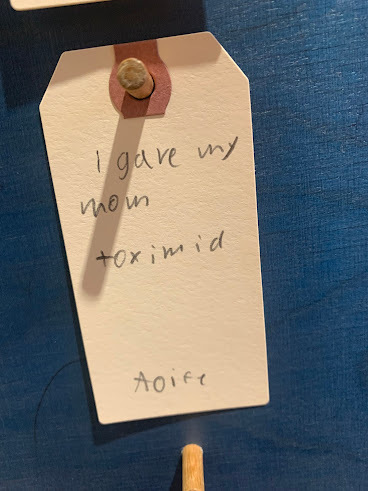 I gave my
mom
toximid
Aoife